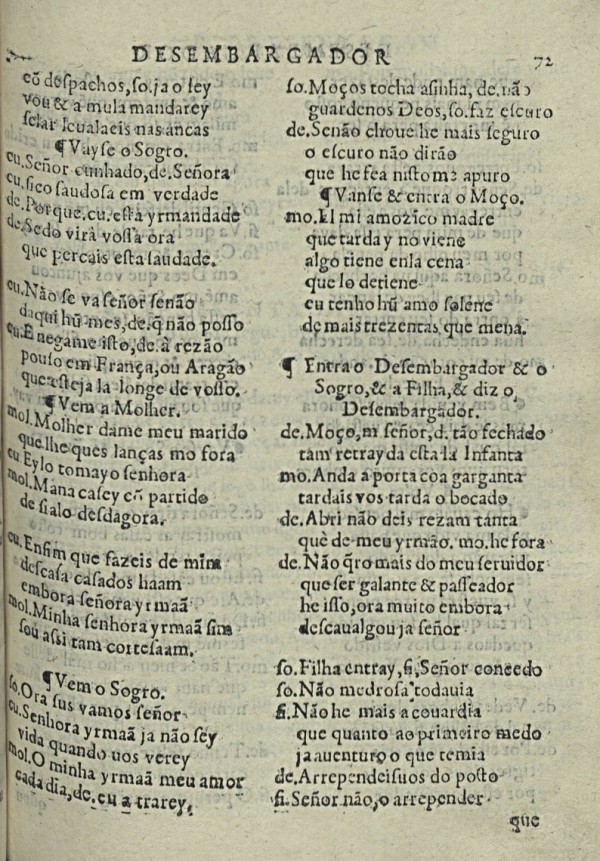 DESEMBARGADOR
72
cõ despachos, so. ja o sey
vou & a mula mandarey
selar leualaeis nas ancas
¶ Vayse o Sogro.
cu. Señor cunhado, de. Señora
cu. fico saudosa em verdade
de. Porque, cu. està yrmandade
de. Sedo virà vossa ora
que percais esta saudade.
cu. Não se va señor senão
daqui hũ mes, de. q̃ não posso
cu. E negame isto, de. à rezão
pouso em França, ou Aragão
que esteja la longe de vosso.
¶ Vem a Molher.
mol. Molher dame meu marido
que lhe ques lanças mo fora
cu Eylo tomayo senhora
mol. Mana casey cõ partido
de sialo desdagora.
cu. Enfim que fazeis de mim
descasa casados haam
embora señora yrmaã
mol. Minha senhora yrmaã sim
sou assi tam cortesaam.
¶ Vem o Sogro.
so. Ora sus vamos señor
cu. Senhora yrmaã ja não sey
vida quando uos verey
mol. O minha yrmaã meu amor
cada dia, de. eu a trarey.
so. Moços tocha asinha, de. não
guardenos Deos, so. faz escuro
de. Senão choue he mais seguro
o escuro não dirão
que he fea nisto me apuro
¶ Vanse & entra o Moço.
mo. El mi amozico madre
que tarda y no viene
algo tiene enla cena
que lo detiene
eu tenho hũ amo solene
de mais trezentas que mena.
¶ Entra o Desembargador & o
Sogro, & a Filha, & diz o
Desembargador.
de. Moço, m señor, d. tão fechado
tam retrayda esta la Infanta
mo. Anda a porta coa garganta
tardais vos tarda o bocado
de. Abri não deis rezam tanta
què de meu yrmão. mo. he fora
de. Não q̃ro mais do meu seruidor
que ser galante & passeador
he isso, ora muito embora
descaualgou ja señor
so. Filha entray, fi. Señor concedo
so. Não medrosa todauia
fi. Não he mais a couardia
que quanto ao primeiro medo
ja auenturo o que temia
de. Arrependeisuos do posto
fi. Señor não, o arrepender
que